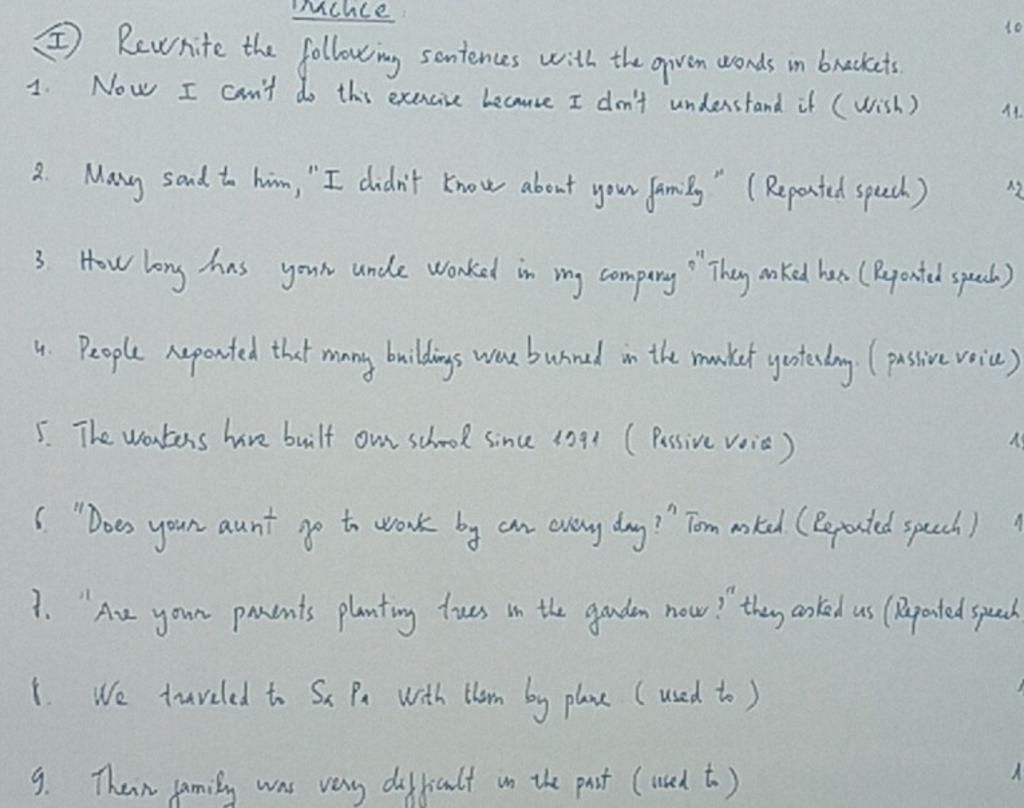 Practice
I Rewrite the following sentences with the given words in brackets.
1. Now I can't do this exercise because I don't understand it (wish)
2. Mary said to him, "I didn't know about your family" (Reported speech)
3. How long has your uncle worked in my company?" They asked her (Reported speech)
4. People reported that many buildings were burned in the market yesterday. (passive voice)
5. The workers have built our school since 1991 (Passive voice)
6. "Does your aunt go to work by car every day?" Tom asked. (Reported speech)
7. "Are your parents planting trees in the garden now?" they asked us (Reported speech
8. We traveled to Sa Pa with them by plane (used to)
9. Their family was very difficult in the past (used to)
10
11.
12